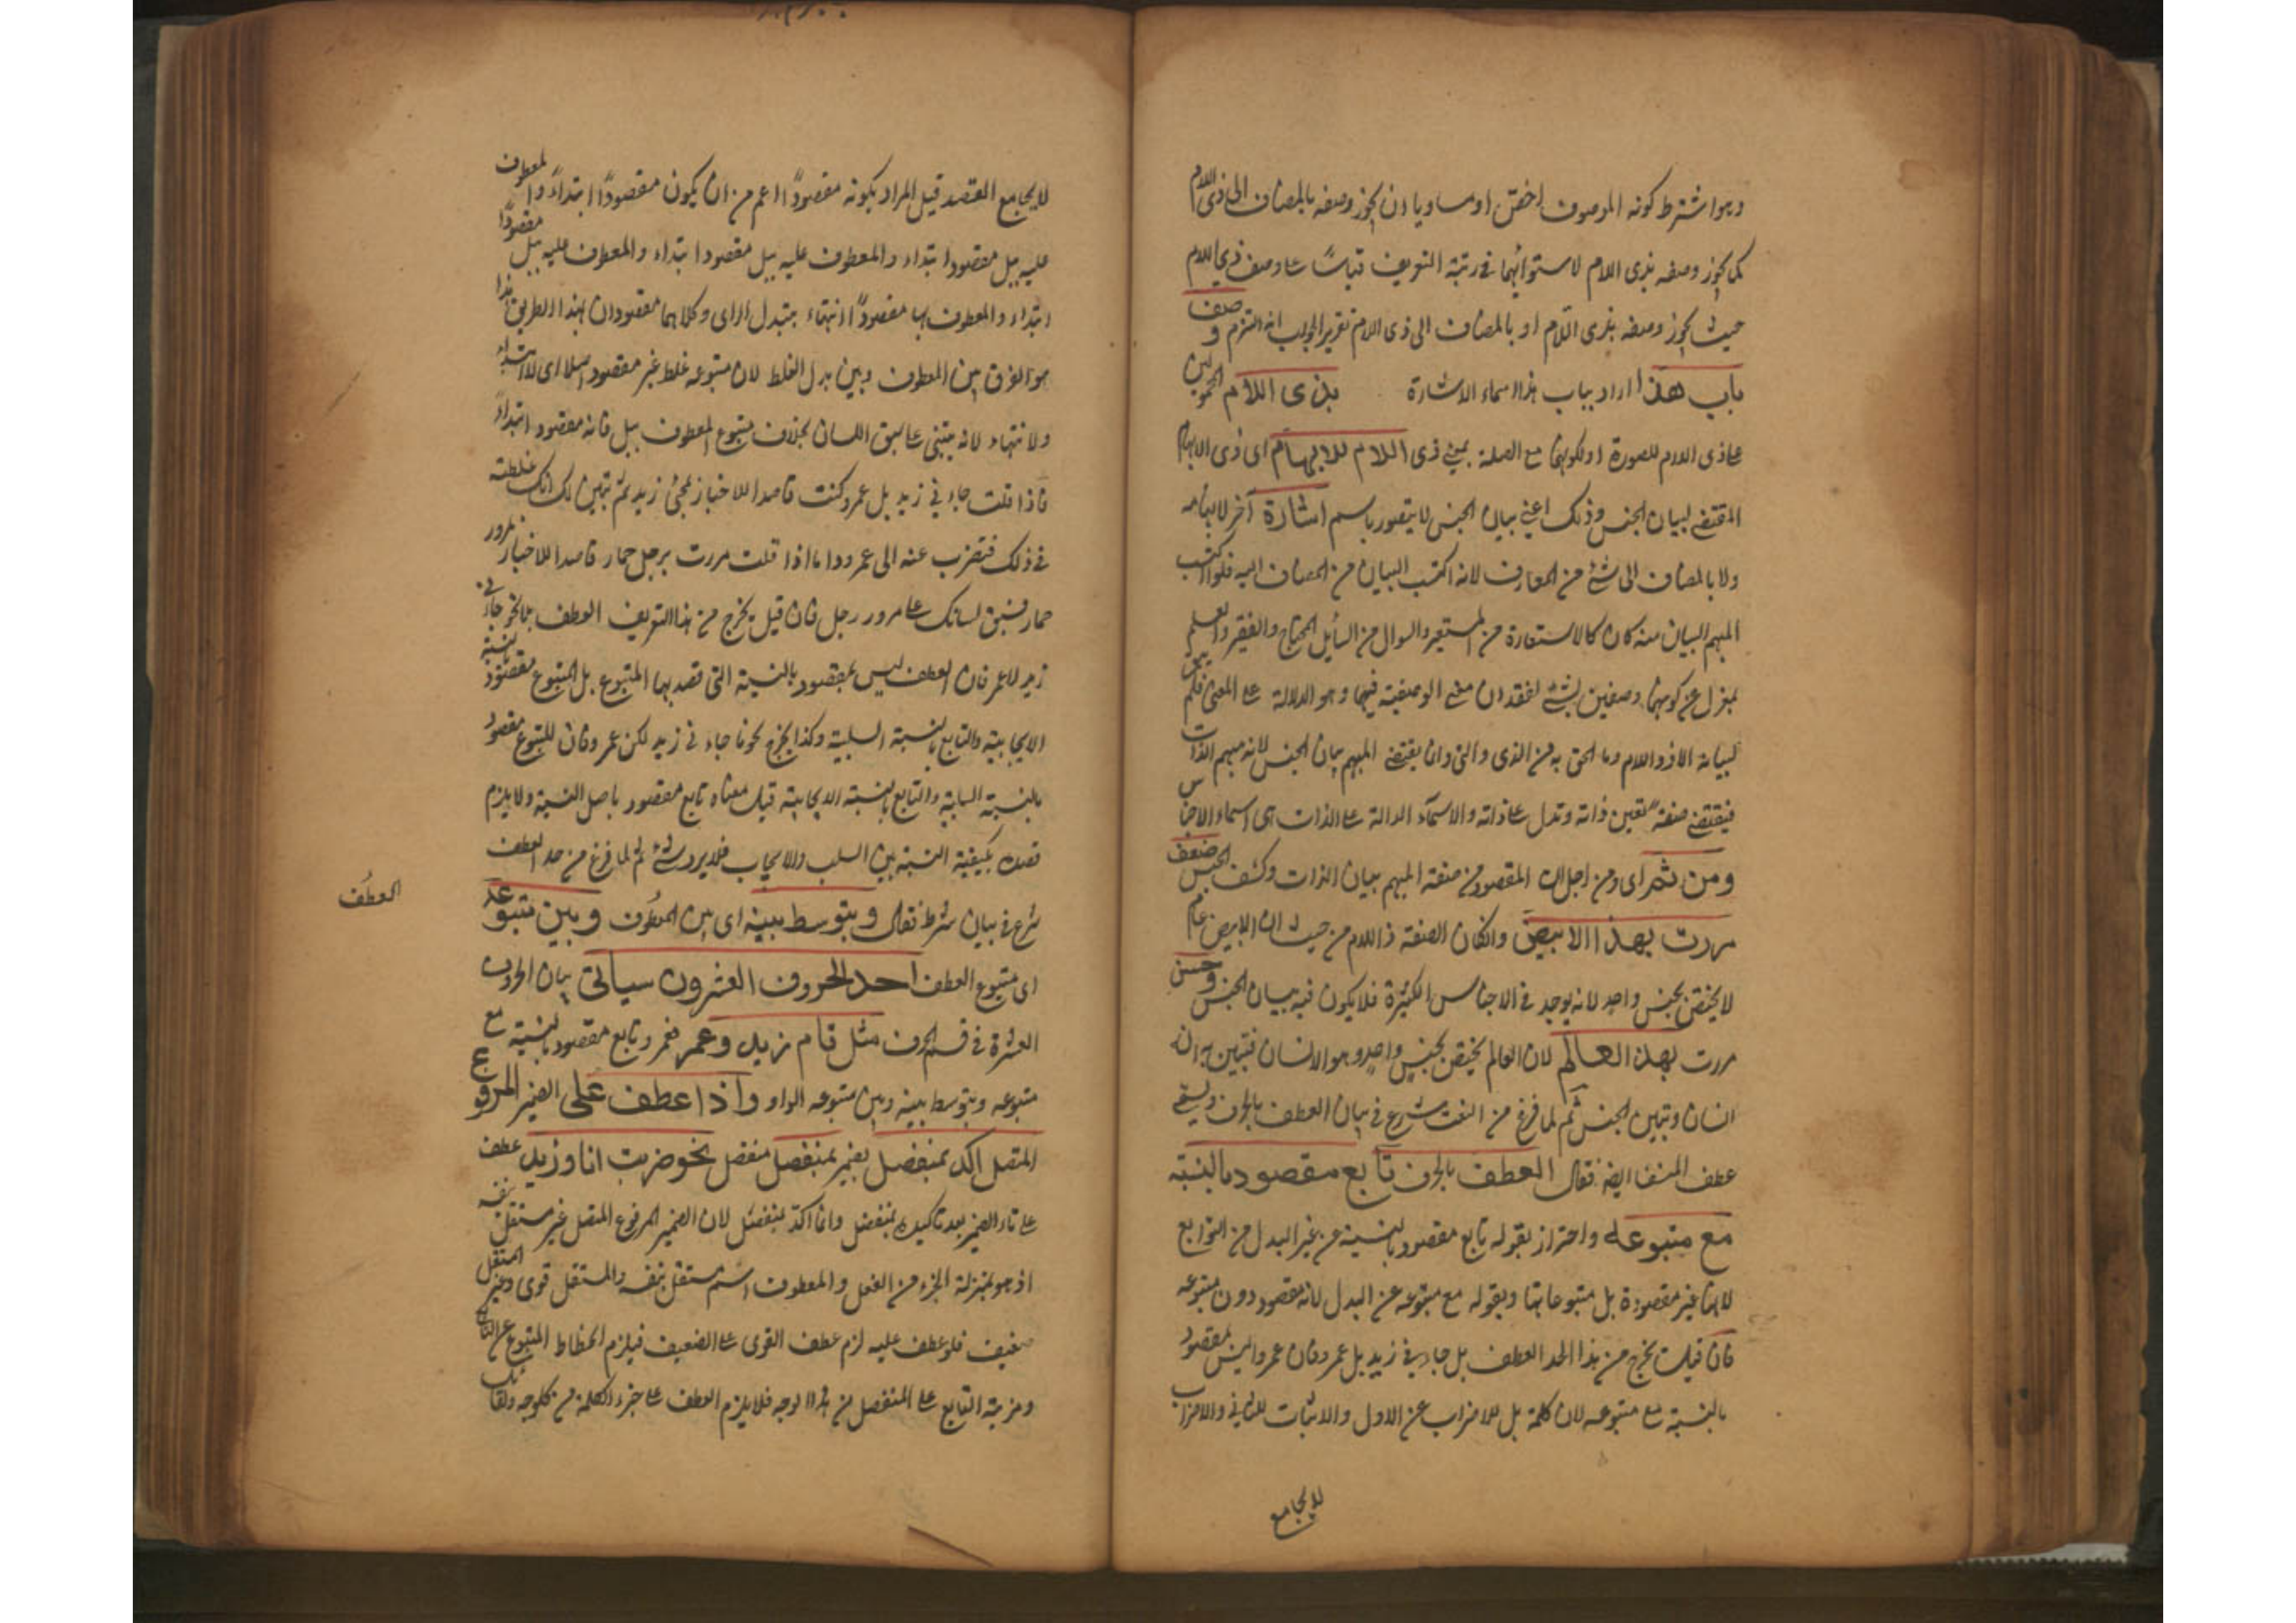 وهو اشترط كونه الموصوف اخص او مساويا اذن يجوز وصفه بالمضاف الى ذى اللام
كما يجوز وصفه بذى اللام لاستوائهما فى رتبة التعريف قياسًا على وصف ذى اللام
حيث يجوز وصفه بذى اللام او بالمضاف الى ذى اللام تقرير الجواب انه التزم وصف
باب هذا اراد بباب هذا اسماء الاشارة بذى اللام
على ذى اللام للصورة او لكونها مع الصلة بمعنى ذى اللام للابهام اى ذى الابهام
المقتضى لبيان الجنس وذلك اعنى بيان الجنس لا يتصور باسم اشارة آخر لابهامه
ولا بالمضاف الى شئ من المعارف لانه اكتسب البيان من المضاف اليه فلو اكتسب
المبهم البيان منه كان كالاستعارة من المستعير والسوال من السائل المحتاج والفقير والعلم
بمعزل عن كونهما وصفين لشئ لفقدان معنى الوصفية فيهما وهو الدلالة على المعنى فلم يبق
لبيانه الا ذو اللام وما الحق به من الذى والتى وان يقتضى المبهم بيان الجنس لانه مبهم الذات
فيقتضى صفة تعين ذاته وتدل على ذاته والاسماء الدالة على الذات هى اسماء الاجناس
ومن ثم اى ومن اجل ان المقصود من صفة المبهم بيان الذات وكشف الجنس ضعف
مررت بهذا الابيض وان كان الصفة ذا اللام من حيث ان الابيض عام
لا يختص بجنس واحد لانه يوجد فى الاجناس الكثيرة فلا يكون فيه بيان الجنس وحسن
مررت بهذا العالم لان العالم يختص بجنس واحد وهو الانسان فتبين به انه
انسان وتبين الجنس ثم لما فرغ من النعت شرع فى بيان العطف بالحرف ويسمى
عطف النسق ايضا فقال العطف بالحرف تابع مقصود بالنسبة
مع متبوعه واحتراز بقوله تابع مقصود بالنسبة عن غير البدل من التوابع
لانها غير مقصودة بل متبوعاتها وبقوله مع متبوعه عن البدل لانه مقصود دون متبوعه
فان قيل يخرج من هذا الحد العطف بل جاءنى زيد بل عمرو فان عمروا ليس بمقصود
بالنسبة مع متبوعه لان كلمة بل للاضراب عن الاول والاثبات للثانى والاضراب
لا يجامع
لا يجامع القصد قيل المراد بكونه مقصودًا اعم من ان يكون مقصودًا ابتداءً والمعطوف
عليه ببل مقصود ابتداء والمعطوف عليه ببل مقصودا ابتداء والمعطوف عليه ببل مقصودًا
ابتداء والمعطوف بها مقصودًا انتهاء بتبدل الراى وكلاهما مقصودان بهذا الطريق هذا
هو الفرق بين المعطوف وبين بدل الغلط لان متبوعه غلط غير مقصود اصلا اى لا ابتداء
ولا انتهاء لانه يبتنى على سبق اللسان بخلاف متبوع المعطوف ببل فانه مقصود ابتداءً
فاذا قلت جاءنى زيد بل عمرو كنت قاصدا للاخبار بمجئ زيد ثم تبين لك انك غلطت
فى ذلك فتضرب عنه الى عمرو واما اذا قلت مررت برجل حمار قاصدا للاخبار بمرور
حمار فسبق لسانك على مرور رجل فان قيل يخرج من هذا التعريف العطف بلا نحو جاءنى
زيد لا عمر فان العطف ليس بمقصود بالنسبة التى قصد بها المتبوع بل المتبوع مقصود بالنسبة
الايجابية والتابع بالنسبة السلبية وكذا يخرج نحو ما جاءنى زيد لكن عمرو فان المتبوع مقصود
بالنسبة السلبية والتابع بالنسبة الايجابية قيل معناه تابع مقصود باصل النسبة ولا يلزم
قصد كيفية النسبة بين السلب والايجاب فلا يرد شئ ثم لما فرغ من حد العطف
شرع فى بيان شرط فقال ويتوسط بينه اى بين المعطوف وبين متبوعه
العطف
اى متبوع العطف احد الحروف العشرون سياتى بيان الحروف
العشرة فى قسم الحرف مثل قام زيد وعمر فعمرو تابع مقصود بالنسبة مع
متبوعه ويتوسط بينه وبين متبوعه الواو واذا عطف على الضمير المرفوع
المتصل اكد بمنفصل بضمير منفصل نحو ضربت انا وزيد عطف
على تاء الضمير بعد تاكيده بمنفصل وانما اكد بمنفصل لان الضمير المرفوع المتصل غير مستقل بنفسه
اذ هو بمنزلة الجزء من الفعل والمعطوف اسم مستقل بنفسه والمستقل قوى وغير المستقل
ضعيف فلو عطف عليه لزم عطف القوى على الضعيف فيلزم انحطاط المتبوع عن التابع
ومزية التابع على المنفصل من هذا الوجه فلا يلزم العطف على جزء الكلمة من كل وجه